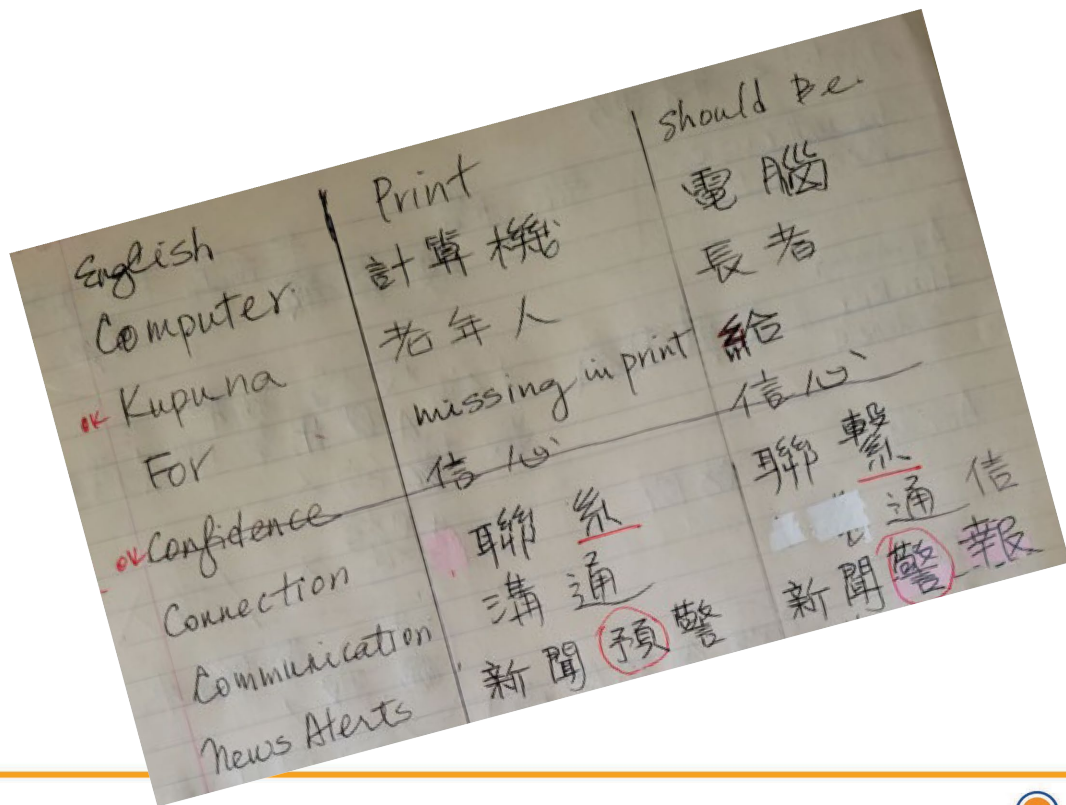 English Print should be
Computer 計算機 電腦
OK Kupuna 老年人 長者
For missing in print 給
OK Confidence 信心 信心
Connection 聯系 聯繫
Communication 溝通 通信
News Alerts 新聞預警 新聞警報